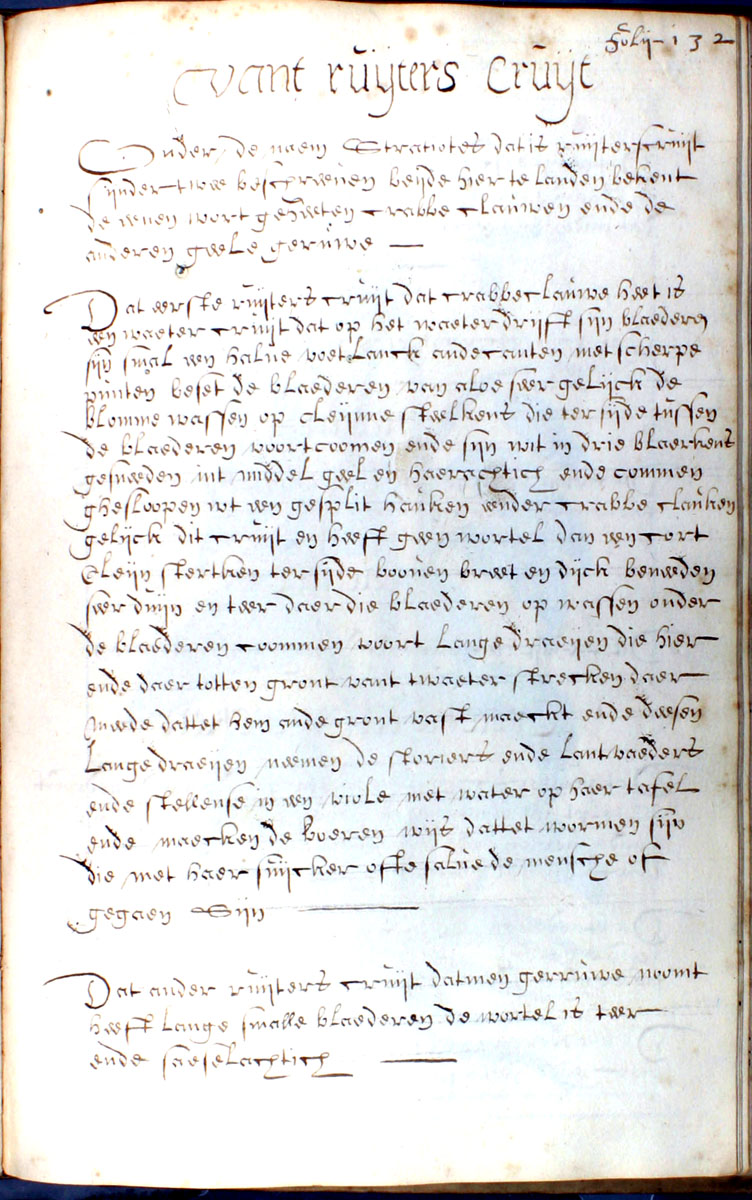 Folij 132
vant ruijters Cruijt
Onder de naem Stratiotes dat is ruijterscruijt
sijnder twee beschreuen beijde hier te landen bekent
de eenen wort geheeten crabbe clauwen ende de
anderen geele geruwe
Dat eerste ruijters cruijt dat crabbeclauwe heet is
een waeter cruijt dat op het waeter drijft sijn blaederen
sijn smal een halue voet lanck ande canten met scherpe
punten beset de blaederen van aloe seer gelijck de
blomme wassen op cleijnne steelkens die ter sijde tussen
de blaederen voortcoomen ende sijn wit in drie blaerkens
gesneden int middel geel en haerachtich ende commen
ghesloopen wt een gesplit hauken eender crabbe clauken
gelijck dit cruijt en heeft geen wortel dan een cort
Cleijn stertken ter sijde boouen breet en dijck beneeden
seer duijn en teer daer die blaederen op wassen onder
de blaederen coommen voort lange draeijen die hier
ende daer totten gront vant twaeter strecken daer
meede dattet hem ande gront vast maeckt ende deesen
Lange draeijen neemen de storiers ende lant vaeders
ende stellense in een viole met water op haer tafel
ende maecken de boeren wijs dattet wormen sijn
die met haer suijcker ofte salue de mensche of
gegaen Sijn
Dat ander ruijters cruijt datmen gerruwe noomt
heeft lange smalle blaederen de wortel is teer
ende faeselachtich